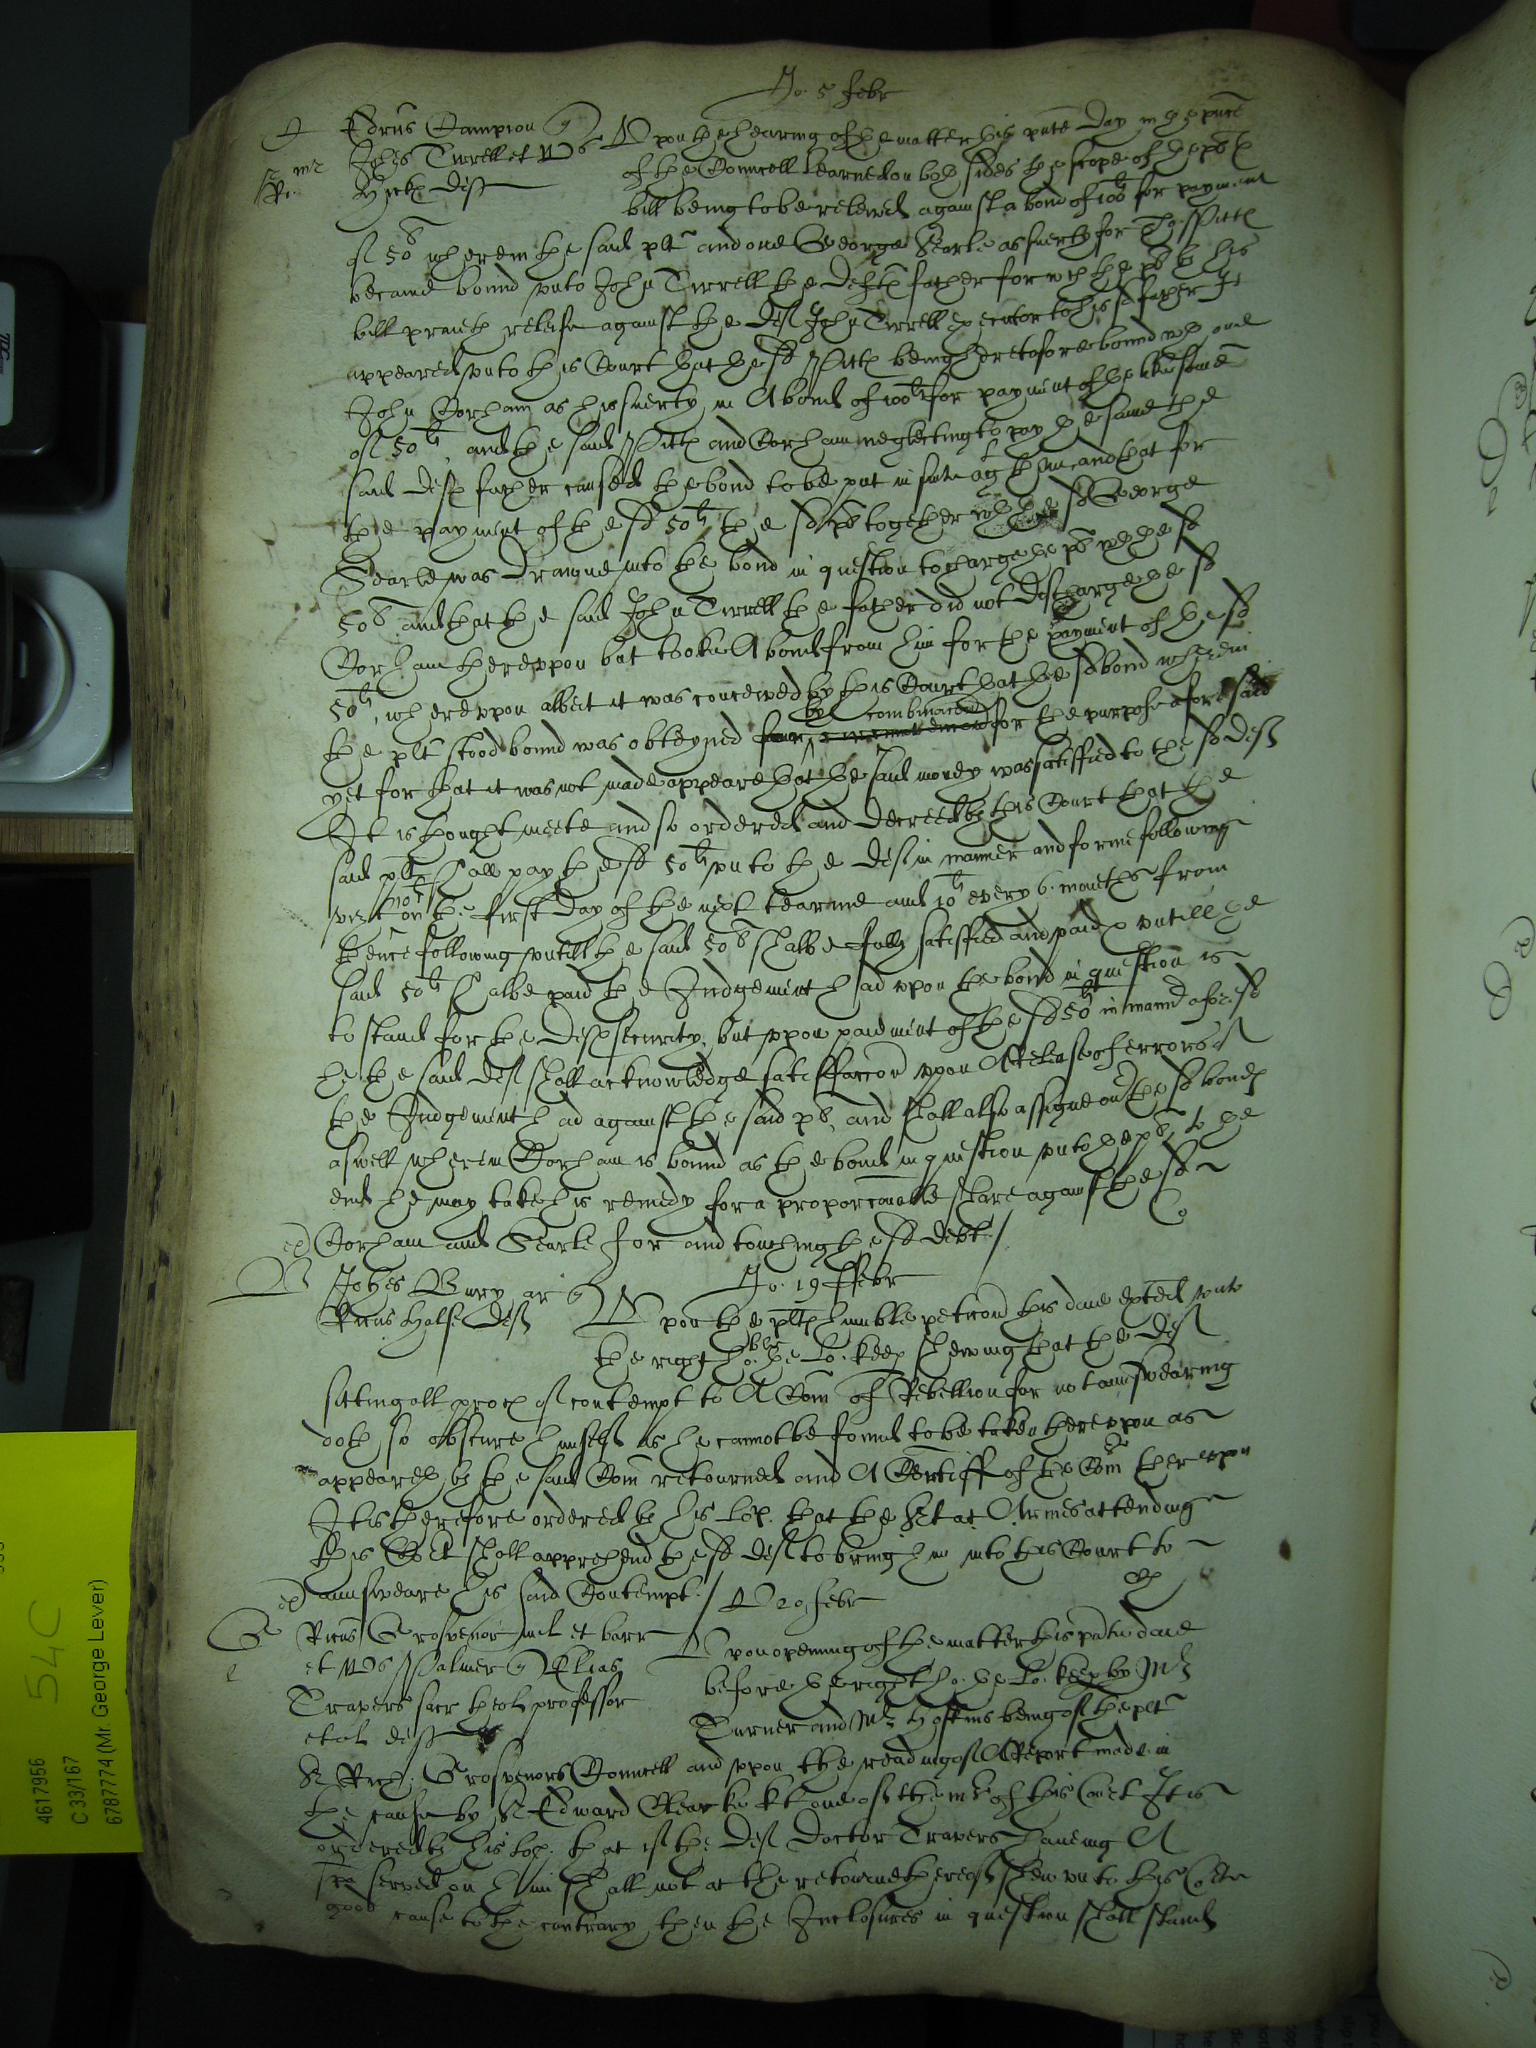 Jo. 5 Febr
C Edrus Campion q Upon the hearing of the matter this pnte day in the pnce
Johes Tirrell et
Hicks deft of the Councell Learned on both sides the scope of the plts
bill being to be releived against a bond of 100li for payment
of 50li wherein the said plt and one George Searle as suerty for Pitts
became bound unto John Tirrell the defts father for wch the pl by his
bill prayeth releife against the deft John Tirrell executor to his sd father It
appeared unto this Court that the sd Pitts being heretofore bound wth one
John Corham as his suerty in A bond of 100li for payment of the like some
of 50li, and the said Pitts and Corham neglecting to pay the same the
said defts father caused the bond to be put in suite agt them, and that for
the payment of the sd 50li the sd pl together wth the sd George
Searle was drawne into the bond in question to charge the pl wth the sd
50li and that the said John Tirrell the father did not discharge the sd
Corham thereupon but tooke A bond from him for the payment of the sd
50li, whereupon albeit it was conceived by this Court that the sd bond wherein
by combinacon
the plt stood bound was obteyned for the purpose aforesaid
yet for that it was not made appeare that the said money was satisfied to the sd deft
It is thought meete and so ordered and decreed by this Court that the
said plt shall pay the sd 50li unto the deft in manner and forme following
vizt 10li on the first day of the next tearme and 10li every 6. moneths from
thence following untill the said 50li shalbe fully satisfied and paid untill the
said 50li shalbe paid the Judgement had upon the bond in question is
to stand for the defts security, but upon paiment of the sd 50li in mannr aforesd
he the said deft shall acknowledge satisfaccon upon A release of errors of
the Judgement had against the said pl, and shall also assigne over the sd bonds
aswell wherein Corham is bound as the bond in question unto the pl, to the
end he may take his remedy for a proporconable share against the sd
Corham and Searle for and touching the sd debt /
Jo. 19 Febr
B Johes Bury ar q Upon the plts humble peticon this daie exhted unto
Ricus Halse deft
the right ho:ble the Lo: keep shewing that the deft
sitting all proces of contempt to A Com of Rebellion for not answearing
doth so obscure himself as he cannot be found to be taken thereupon as
appeareth by the said Com retourned and A Certiff of the Comrs thereupon
It is therefore ordered by his Lop. that the Sert at Armes attending
this Cort shall apprehend the sd deft to bring him into this Court to
answeare his said Contempt. / 20 Febr
G Ricus Grosvenor mil et barr Upon opening of the matter this pnte daie
et Palmer q Elias
Travers sacr theol professor before the right ho: the Lo: keep by Mr
et al defts Turner and Mr Hoskins being of the plt
Sr Rich: Grosvenors Councell and upon the reading of A Report made in
the cause by Sr Edward Clearke kt one of the mrs of this Court It is
ordered by his Lop. that if the deft Doctor Travers haveing A
spa served on him shall not at the retourne thereof shew unto this Courte
good cause to the contrary then the Inclosures in question shall stand
54C
4617956
C 33/167
6787774 (Mr. George Lever)